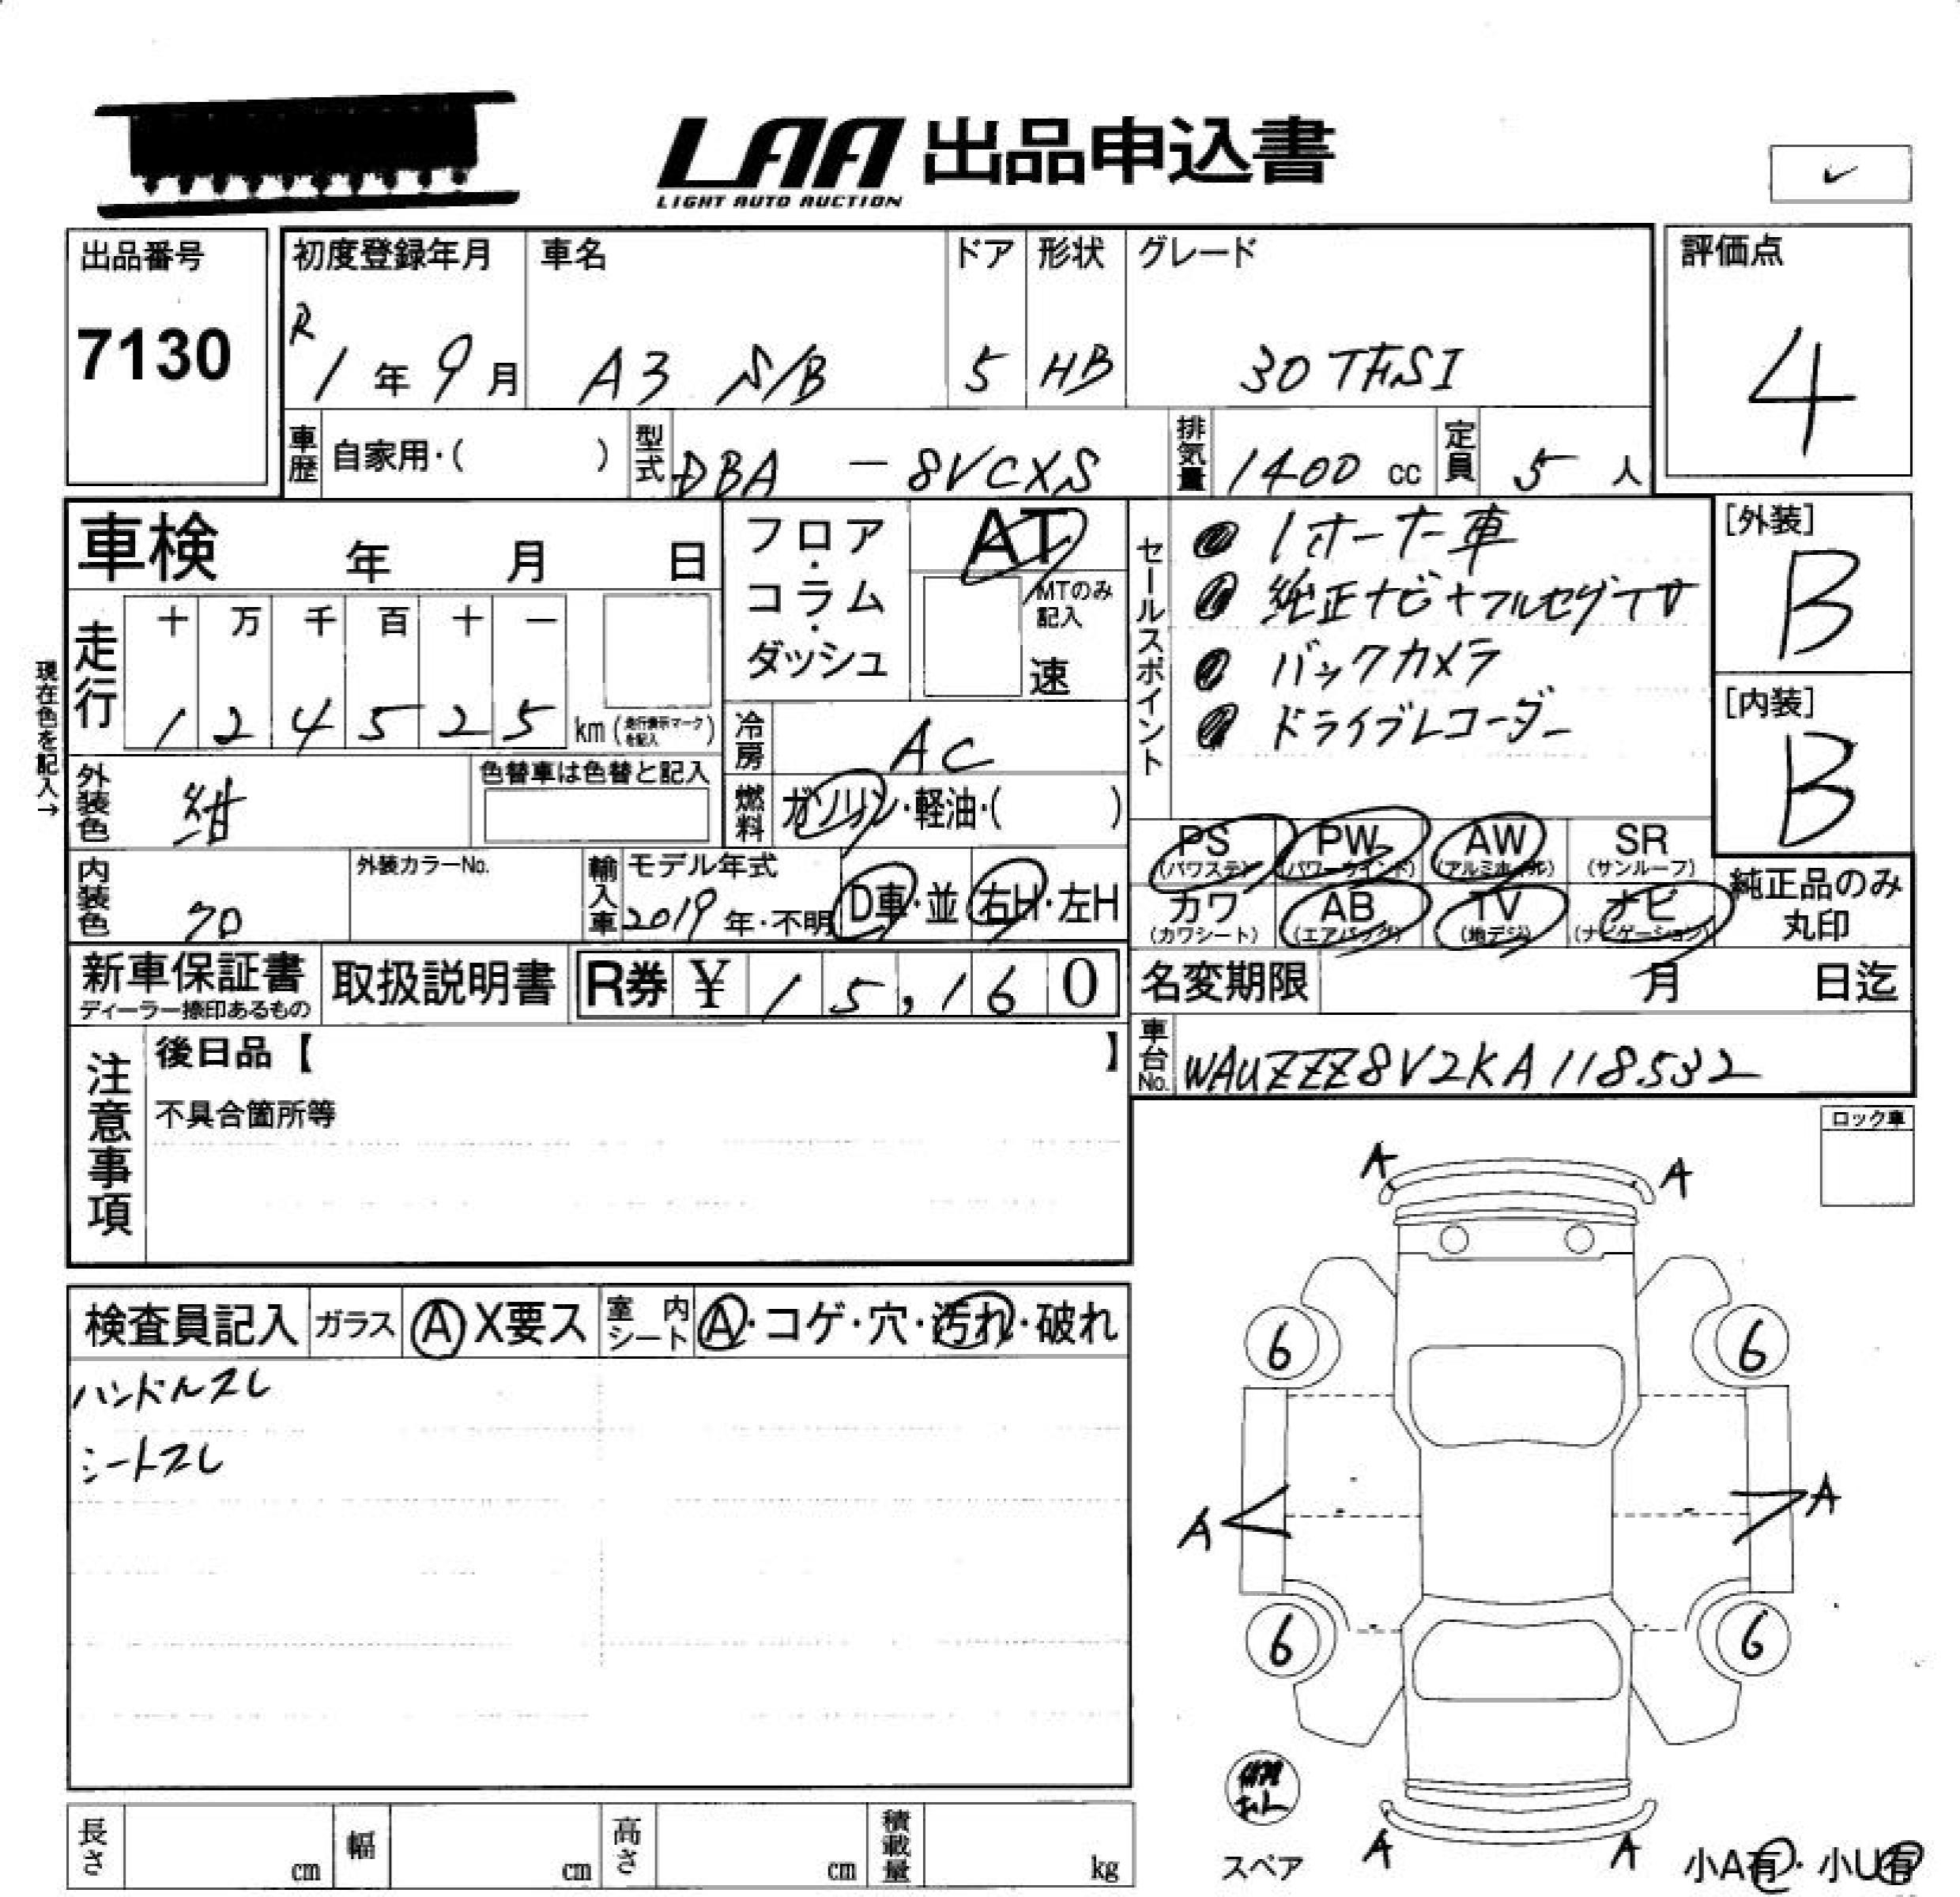 LAA 出品申込書
LIGHT AUTO AUCTION
✓
出品番号
7130
初度登録年月 車名 ドア 形状 グレード
R 1年 9月 A3 S/B 5 HB 30 TFSI
評価点
4
車歴 自家用・( ) 型式 DBA - 8VCXS 排気量 1400 cc 定員 5 人
車検 年 月 日
フロア・コラム・ダッシュ
AT
MTのみ記入
速
セールスポイント
● 1オーナー車
● 純正ナビ+フルセグTV
● バックカメラ
● ドライブレコーダー
[外装]
B
[内装]
B
現在色を記入→
走行 十 万 千 百 十 一
1 2 4 5 2 5 km (走行表示マークを記入)
冷房 AC
外装色 紺 色替車は色替と記入
燃料 ガソリン・軽油・( )
PS (パワステ) PW (パワーウインド) AW (アルミホイル) SR (サンルーフ)
カワ (カワシート) AB (エアバック) TV (地デジ) ナビ (ナビゲーション)
純正品のみ丸印
内装色 クロ 外装カラーNo. 輸入車 モデル年式 2019 年・不明 D車・並 右H・左H
新車保証書 取扱説明書 R券 ¥ 15,160
ディーラー捺印あるもの
名変期限 月 日迄
車台No. WAUZZZ8V2KA118532
注意事項
後日品【 】
不具合箇所等
ロック車
検査員記入 ガラス A X要ス 室内シート A・コゲ・穴・汚れ・破れ
ハンドルスレ
シートスレ
A A
6 6
A A
6 6
スペア
A A
小A有・小U有
長さ cm 幅 cm 高さ cm 積載量 kg